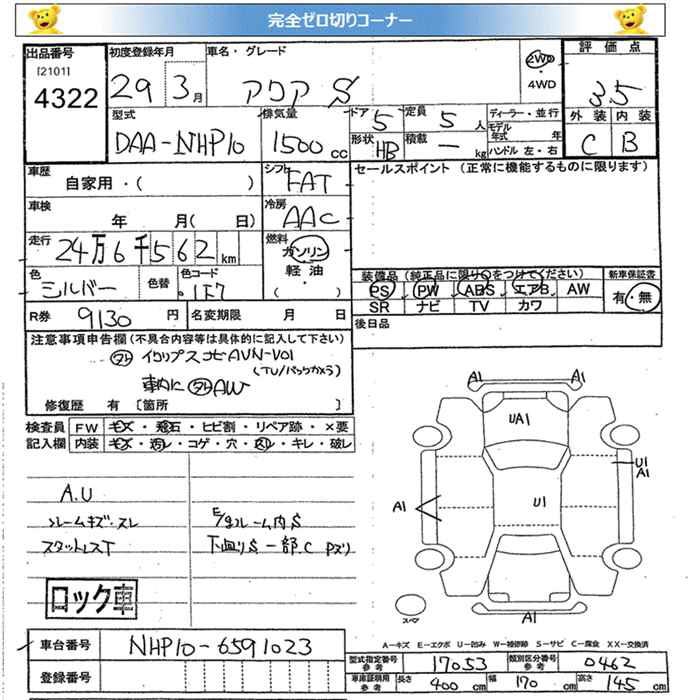 完全ゼロ切りコーナー
出品番号 初度登録年月 車名・グレード 2WD 評価点
[2101]
4322 29 3月 アクア S 4WD 3.5
型式 排気量 ドア 5 定員 5人 ディーラー・並行 外装 内装
DAA-NHP10 1500cc 形状 HB 積載 — kg モデル年式 年 ハンドル 左・右 C B
車歴 シフト FAT セールスポイント（正常に機能するものに限ります）
自家用・( )
車検 冷房 AAC
年 月( 日)
走行 燃料
24万6千562km ガソリン
軽油・
( )
色 色替 色コード 装備品（純正品に限り○をつけてください） 新車保証書
シルバー 1F7 PS PW ABS エアB AW 有・無
SR ナビ TV カワ
R券 9130円 名変期限 月 日 後日品
注意事項申告欄（不具合内容等は具体的に記入して下さい）
イクリプスナビAVN-V01
(TV/バックカメラ)
車内に AW
修復歴 有 [箇所 ]
検査員記入欄 FW キズ・飛石・ヒビ割・リペア跡・×要
内装 キズ・汚レ・コゲ・穴・スレ・キレ・破レ
A1 A1
UA1
U1
A1
A1
U1
A1
スペア
A.U
フレームキズ・スレ
スタットレスT
E/gルーム内S
下廻りS 一部C Pズリ
ロック車
A－キズ E－エクボ U－凹み W－補修跡 S－サビ C－腐食 XX－交換済
車台番号 NHP10-6591023
型式指定番号 参考 17053 類別区分番号 参考 0462
登録番号
車庫証明用 参考 長さ 400cm 幅 170cm 高さ 145cm